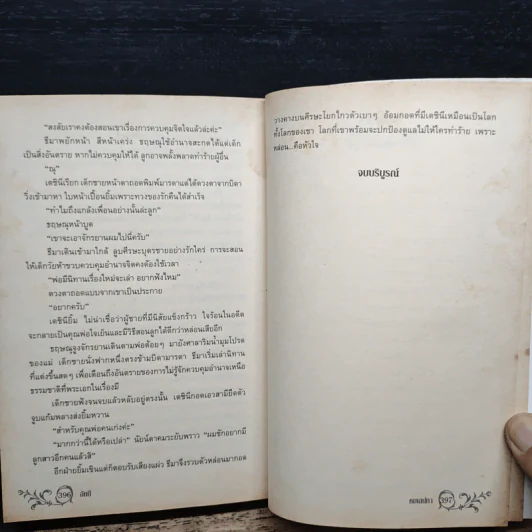 “สงสัยเราคงต้องสอนเขาเรื่องการควบคุมจิตใจแล้วล่ะค่ะ”
ธีมาพยักหน้า สีหน้าเคร่ง ชฤษณุใช้อำนาจสะกดให้แต่เด็ก
เป็นสิ่งอันตราย หากไม่ควบคุมให้ได้ ลูกอาจพลั้งพลาดทำร้ายผู้อื่น
“ณุ”
เตชินีเรียก เด็กชายหน้าตาถอดพิมพ์มารดาแต่ได้ดวงตาจากบิดา
วิ่งเข้ามาหา ใบหน้าเปื้อนยิ้มเพราะทวงของรักคืนได้สำเร็จ
“ทำไมถึงแกล้งเพื่อนอย่างนั้นล่ะลูก”
ชฤษณุหน้ามุ่ย
“เขาจะเอาจักรยานผมไปนี่ครับ”
ธีมาเดินเข้ามาใกล้ ลูบศีรษะบุตรชายอย่างรักใคร่ การจะสอน
ให้เด็กวัยห้าขวบควบคุมอำนาจจิตคงต้องใช้เวลา
“พ่อมีนิทานเรื่องใหม่จะเล่า อยากฟังไหม”
ดวงตาถอดแบบจากเขาเป็นประกาย
“อยากครับ”
เตชินียิ้ม ไม่น่าเชื่อว่าผู้ชายที่มีนิสัยแข็งกร้าว ใจร้อนในอดีต
จะกลายเป็นคุณพ่อใจเย็นและมีวิธีสอนลูกได้ดีกว่าหล่อนเสียอีก
ชฤษณุจูงจักรยานเดินตามพ่อต้อยๆ มายังศาลาริมน้ำมุมโปรด
ของแม่ เด็กชายนั่งฟากหนึ่งตรงข้ามบิดามารดา ธีมาเริ่มเล่านิทาน
ที่แต่งขึ้นสดๆ เพื่อเตือนถึงอันตรายของการไม่รู้จักควบคุมอำนาจเหนือ
ธรรมชาติที่พระเอกในเรื่องมี
เด็กชายฟังจนจบแล้วหลับอยู่ตรงนั้น เตชินีกอดเอวสามียืดตัว
จูบแก้มพลางส่งยิ้มหวาน
“สำหรับคุณพ่อคนเก่งค่ะ”
“มากกว่านี้ได้หรือเปล่า” นัยน์ตาคมระยิบพราว “ผมชักอยากมี
ลูกสาวอีกคนแล้วสิ”
อีกฝ่ายยิ้มเขินแต่ก็ตอบรับเสียงแผ่ว ธีมาจึงรวบตัวหล่อนมากอด
396 อัคนี
วางคางบนศีรษะโยกไกวตัวเบาๆ อ้อมกอดที่มีเตชินีเหมือนเป็นโลก
ทั้งโลกของเขา โลกที่เขาพร้อมจะปกป้องดูแลไม่ให้ใครทำร้าย เพราะ
หล่อน...คือหัวใจ
จบบริบูรณ์
397